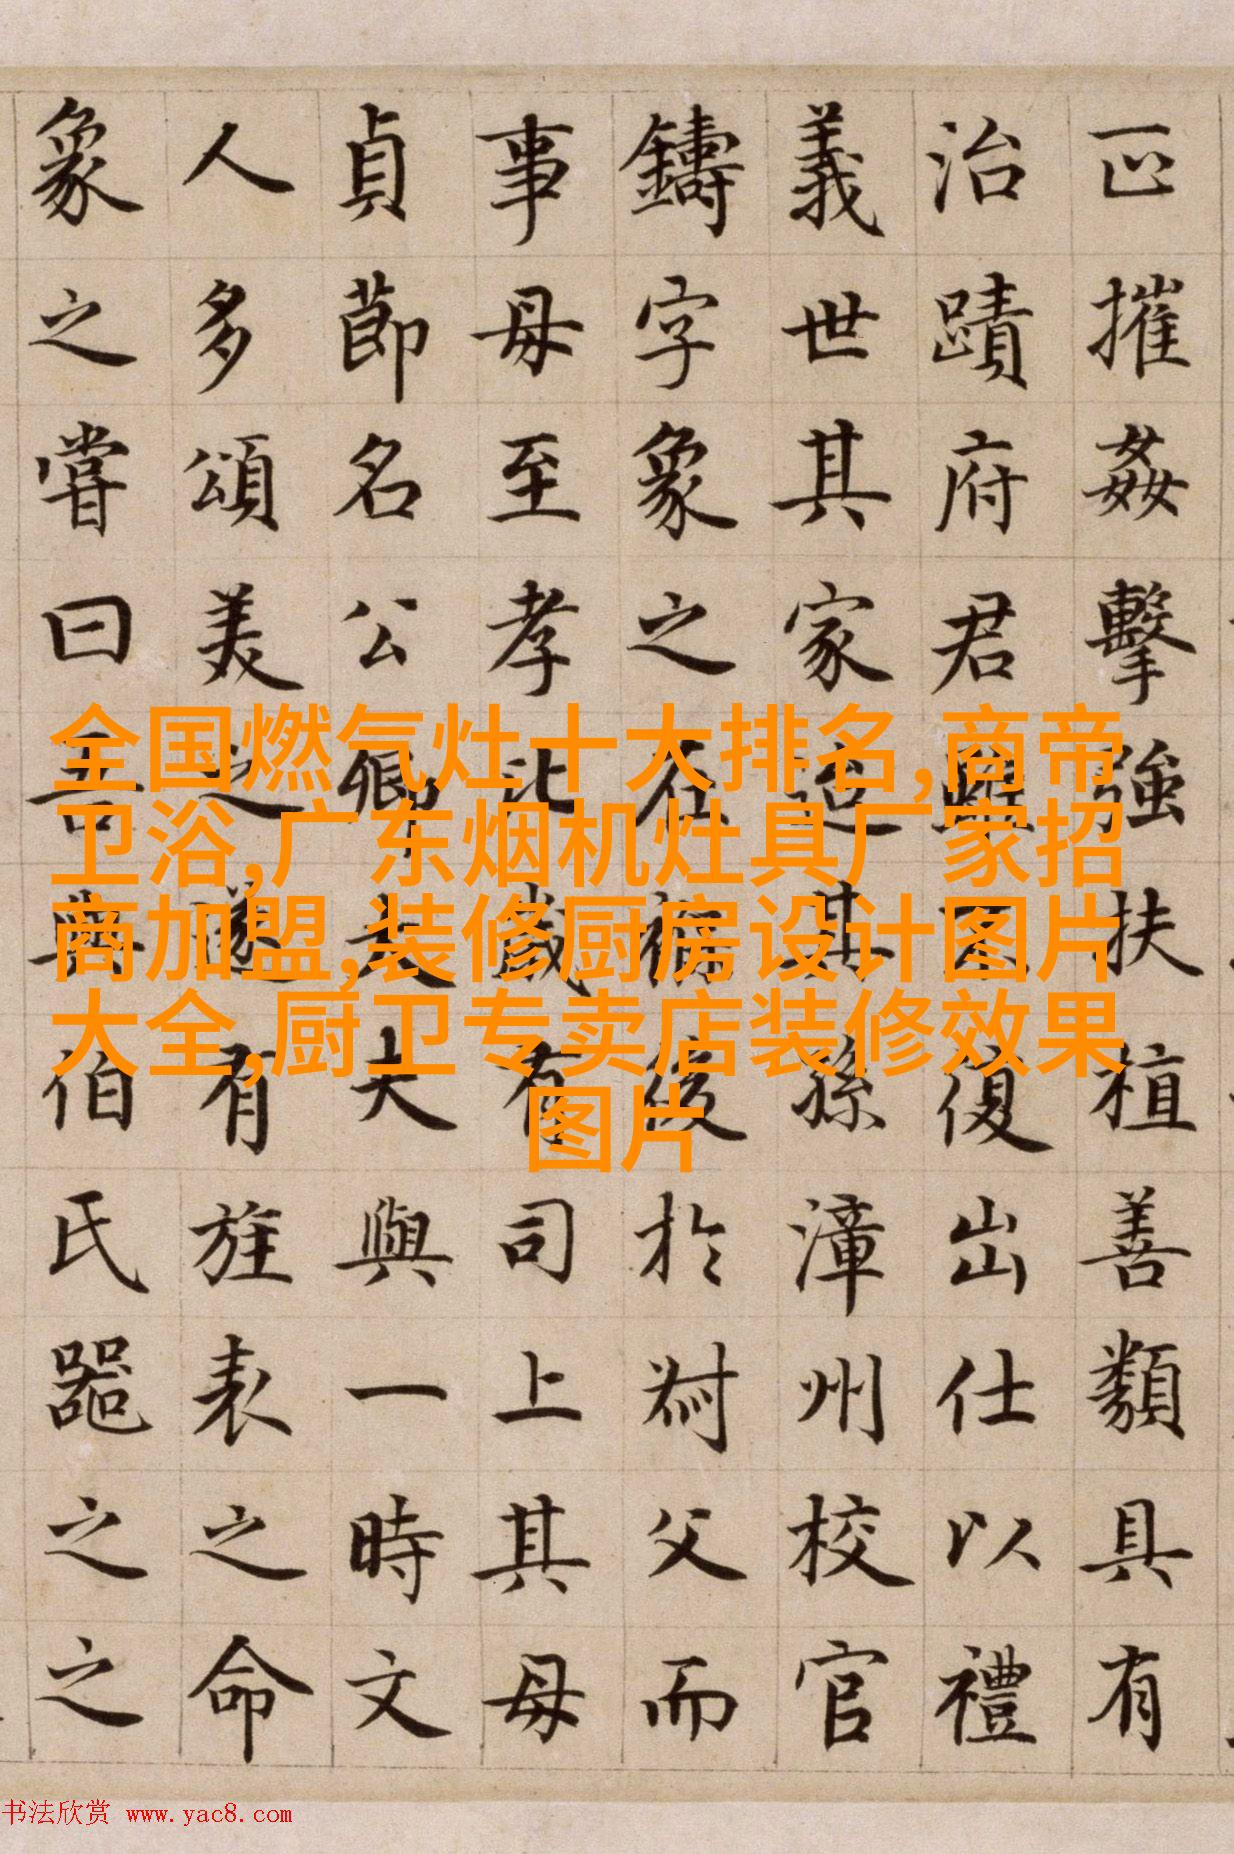 正摧姦擊強扶植善類具有
治蹟府君雖不復出仕以禮
義世其家迨其孫漳州校官
鑄字象之在後於叔父而
事母至孝比歲有司上其母
貞節名公卿大夫與一時文
人多頌美之遂有旌表之命
象之嘗曰吾與伯氏器之之
全国燃气灶十大排名,商帝
卫浴,广东烟机灶具厂家招
商加盟,装修厨房设计图片
大全,厨卫专卖店装修效果
图片
书法欣赏 www.yac8.com